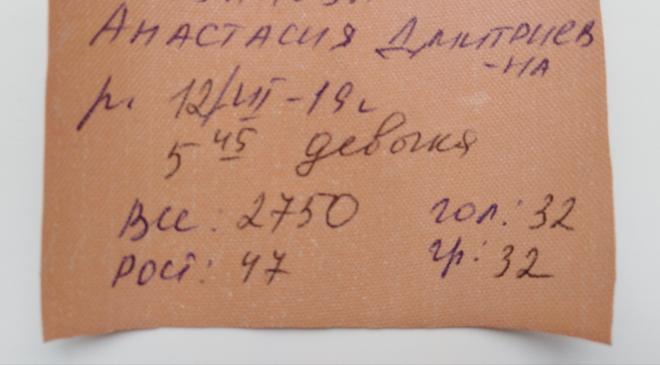 Анастасия Дмитриев
-на
р. 12/VII-19г
5 45 девочка
Вес: 2750 гол.: 32
Рост: 47 гр: 32